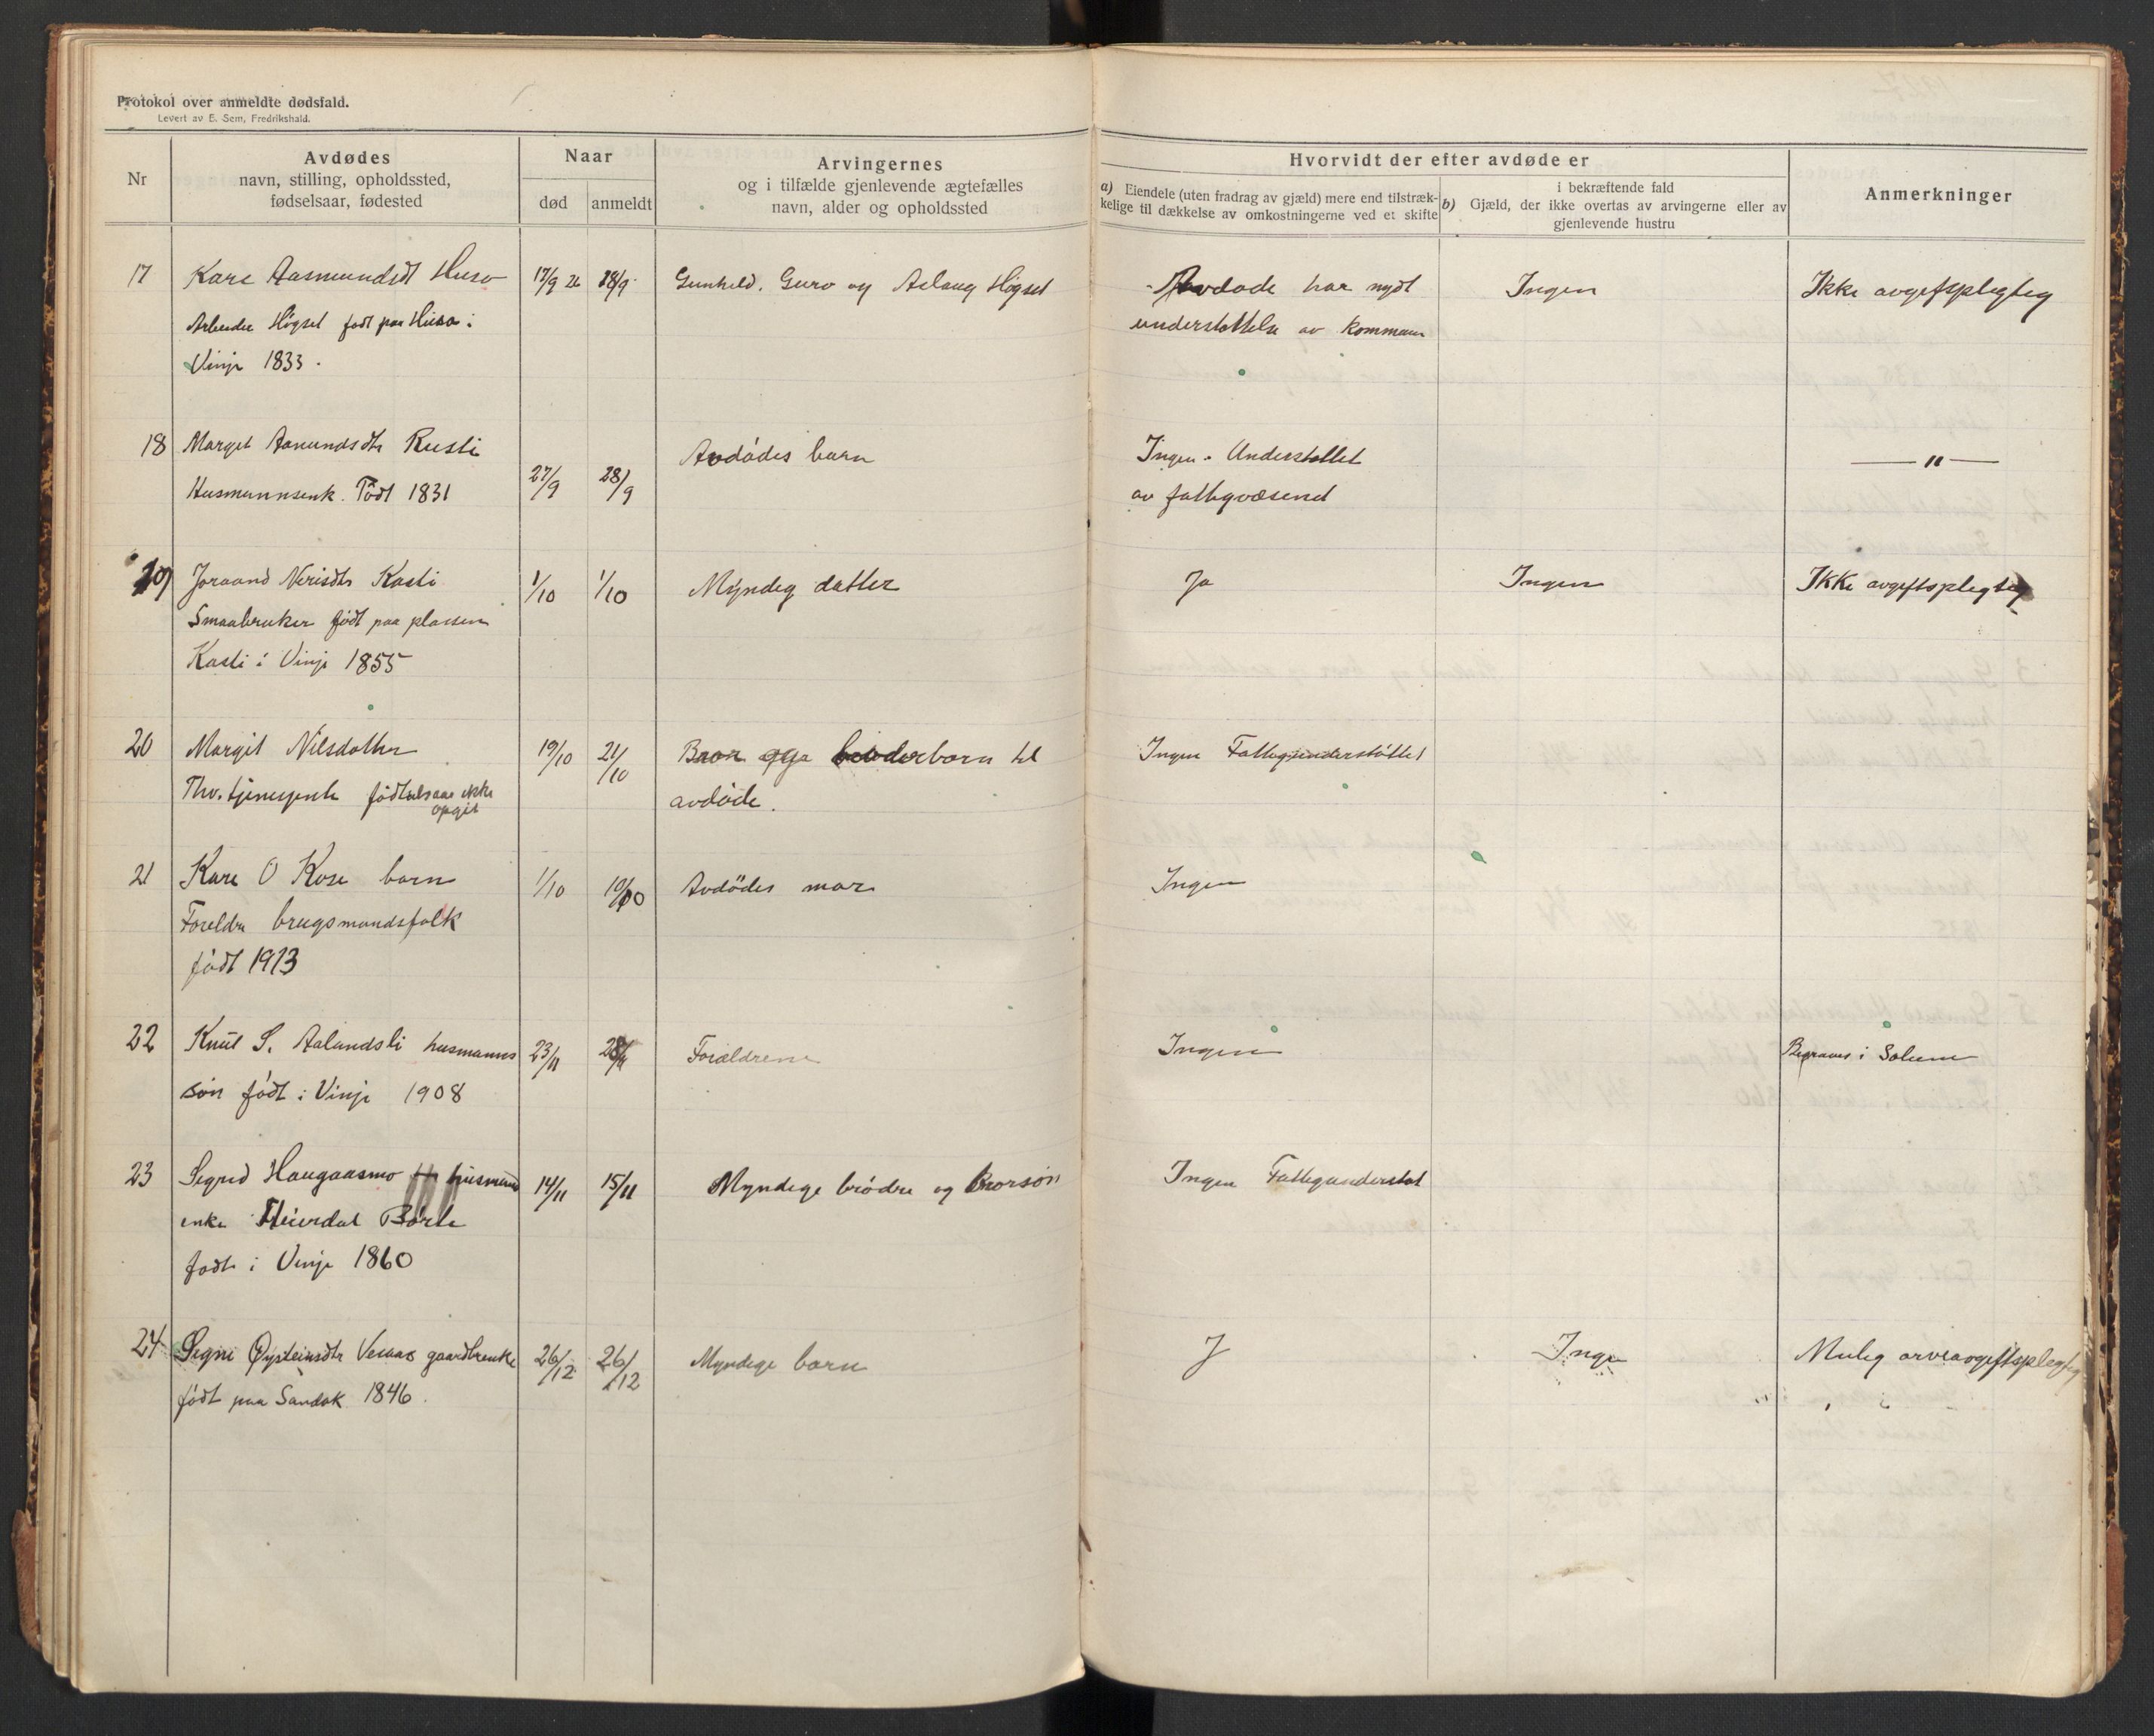 Protokol over anmeldte dødsfald.
Levert av E. Sem, Fredrikshald.
Nr
Avdødes
navn, stilling, opholdssted,
fødselsaar, fødested
Naar
død
anmeldt
Arvingernes
og i tilfælde gjenlevende ægtefælles
navn, alder og opholdssted
Hvorvidt der efter avdøde er
a) Eiendele (uten fradrag av gjæld) mere end tilstræk-
kelige til dækkelse av omkostningerne ved et skifte
i bekræftende fald
b) Gjæld, der ikke overtas av arvingerne eller av
gjenlevende hustru
Anmerkninger
17 Kare Aasmundsdt Huso 17/9 26 18/9 Gunhild, Guro og Aslaug Høgset Avdøde har nydt Ingen Ikke avgeftsplegteg
Arbeider Høgset født paa Huso i understøttelse av kommunen
Vinje 1833.
18 Marget Aanundsdtr Rusti Avdødes barn Ingen. Understøttet — " —
Husmannsenk. Født 1831 27/9 28/9 av fattigvæsend
19 Joraand Nerisdtr Kasti 1/10 1/10 Myndeg datter Ja Ingen Ikke avgeftsplegteg
Smaabruker født paa plassen
Kasti i Vinje 1855
20 Margit Nilsdotter 19/10 21/10 Bror og broderborn til Ingen Fattegunderstøttet
Thv. tjenesjente fødtselsaar ikke
opgit
avdøde.
21 Kare O Kose barn 1/10 10/10 Avdødes mor Ingen
Foreldre brugsmandsfolk
født 1913
22 Knut S. Aalandsli husmanns 23/11 28/11 Forældrene Ingen Begraves i Solum
søn født i Vinje 1908
23 Signd Haugaasmo husmand 14/11 15/11 Myndige brødre og Brorsøn Ingen Fattegunderstøt
enke Børte
født i Vinje 1860
24 Signe Øysteinsdtr Vesaas gaardbrenke 26/12 26/12 Myndige barn J Ingen Mulig arveavgeftsplegteg
født paa Sandok 1846.